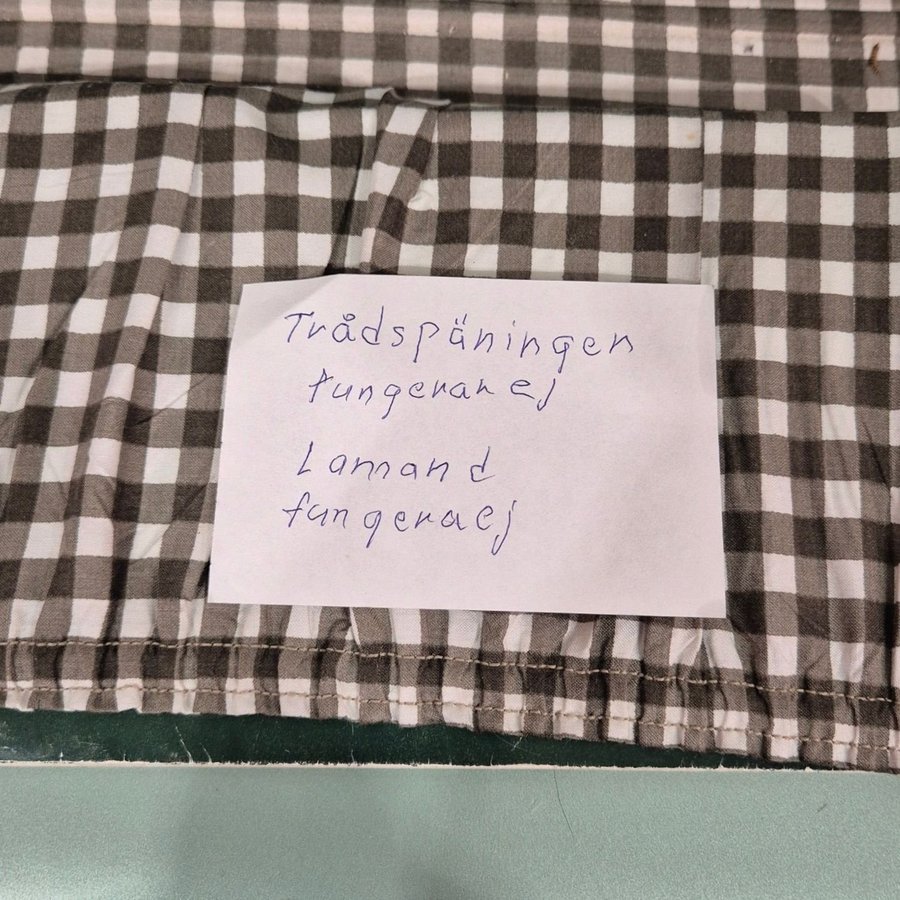 Trådspäningen
fungerar ej
Lamand
fungera ej